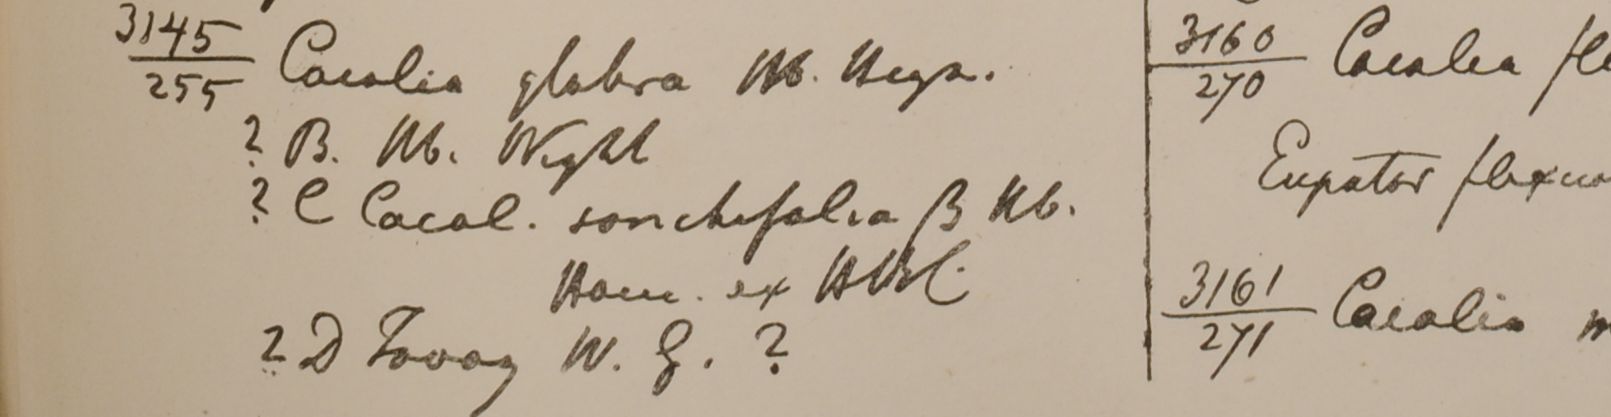 3145
255 Cacalia glabra Hb. Heyn.
? B. Hb. Wight
? C Cacal. sonchifolia β Hb.
Ham. ex HBC
? D Tavoy W. G. ?
3160
270 Cacalia fl
Eupator flexuo
3161
271 Cacalia m